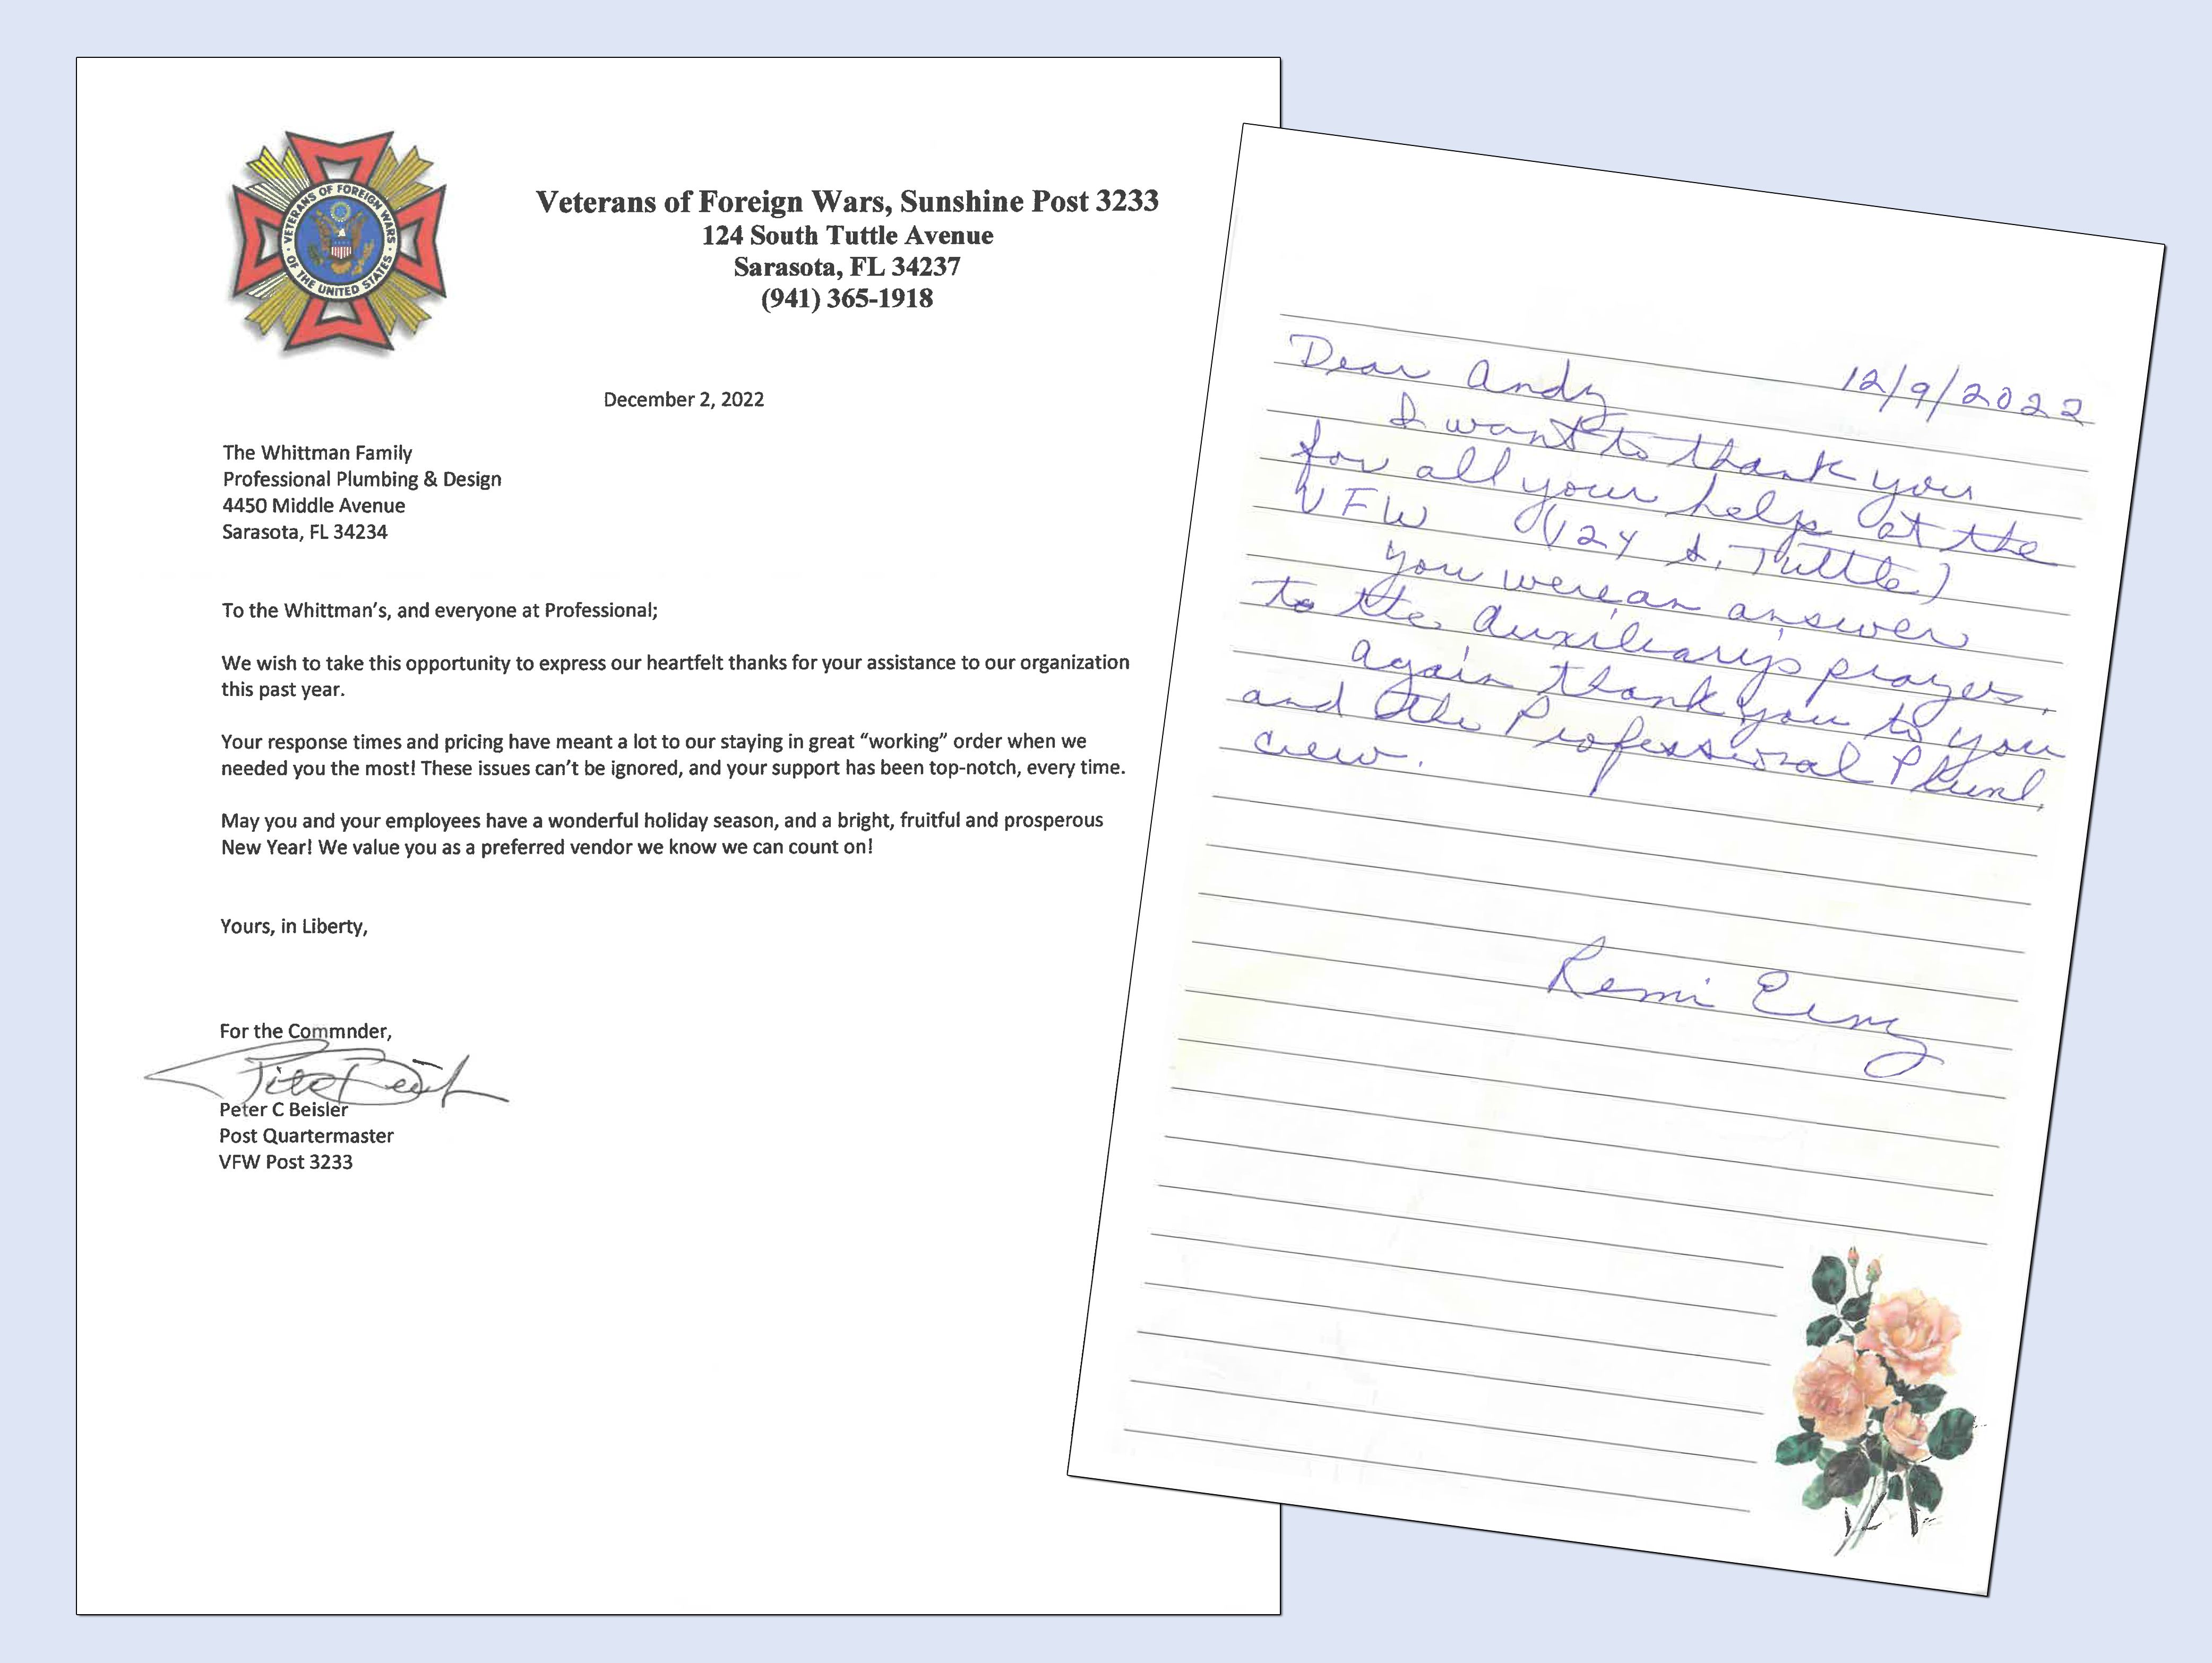 VETERANS OF FOREIGN WARS
OF THE UNITED STATES
Veterans of Foreign Wars, Sunshine Post 3233
124 South Tuttle Avenue
Sarasota, FL 34237
(941) 365-1918
December 2, 2022
The Whittman Family
Professional Plumbing & Design
4450 Middle Avenue
Sarasota, FL 34234
To the Whittman's, and everyone at Professional;
We wish to take this opportunity to express our heartfelt thanks for your assistance to our organization
this past year.
Your response times and pricing have meant a lot to our staying in great “working” order when we
needed you the most! These issues can't be ignored, and your support has been top-notch, every time.
May you and your employees have a wonderful holiday season, and a bright, fruitful and prosperous
New Year! We value you as a preferred vendor we know we can count on!
Yours, in Liberty,
For the Commnder,
Peter C Beisler
Post Quartermaster
VFW Post 3233
Dear Andy 12/9/2022
I want to thank you
for all your help at the
VFW (124 S. Tuttle)
You were an answer
to the Auxiliary's prayers.
Again thank you to you
and the Professional Plumb.
crew.
Remi